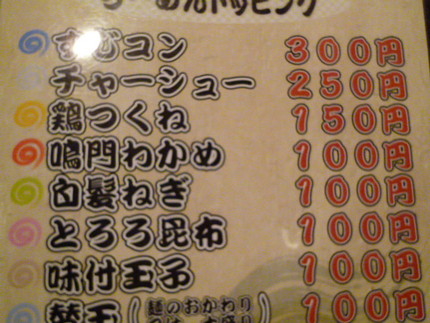 らーめんトッピング
すじコン 300円
チャーシュー 250円
鶏つくね 150円
鳴門わかめ 100円
白髪ねぎ 100円
とろろ昆布 100円
味付玉子 100円
替玉(麺のおかわり 100円